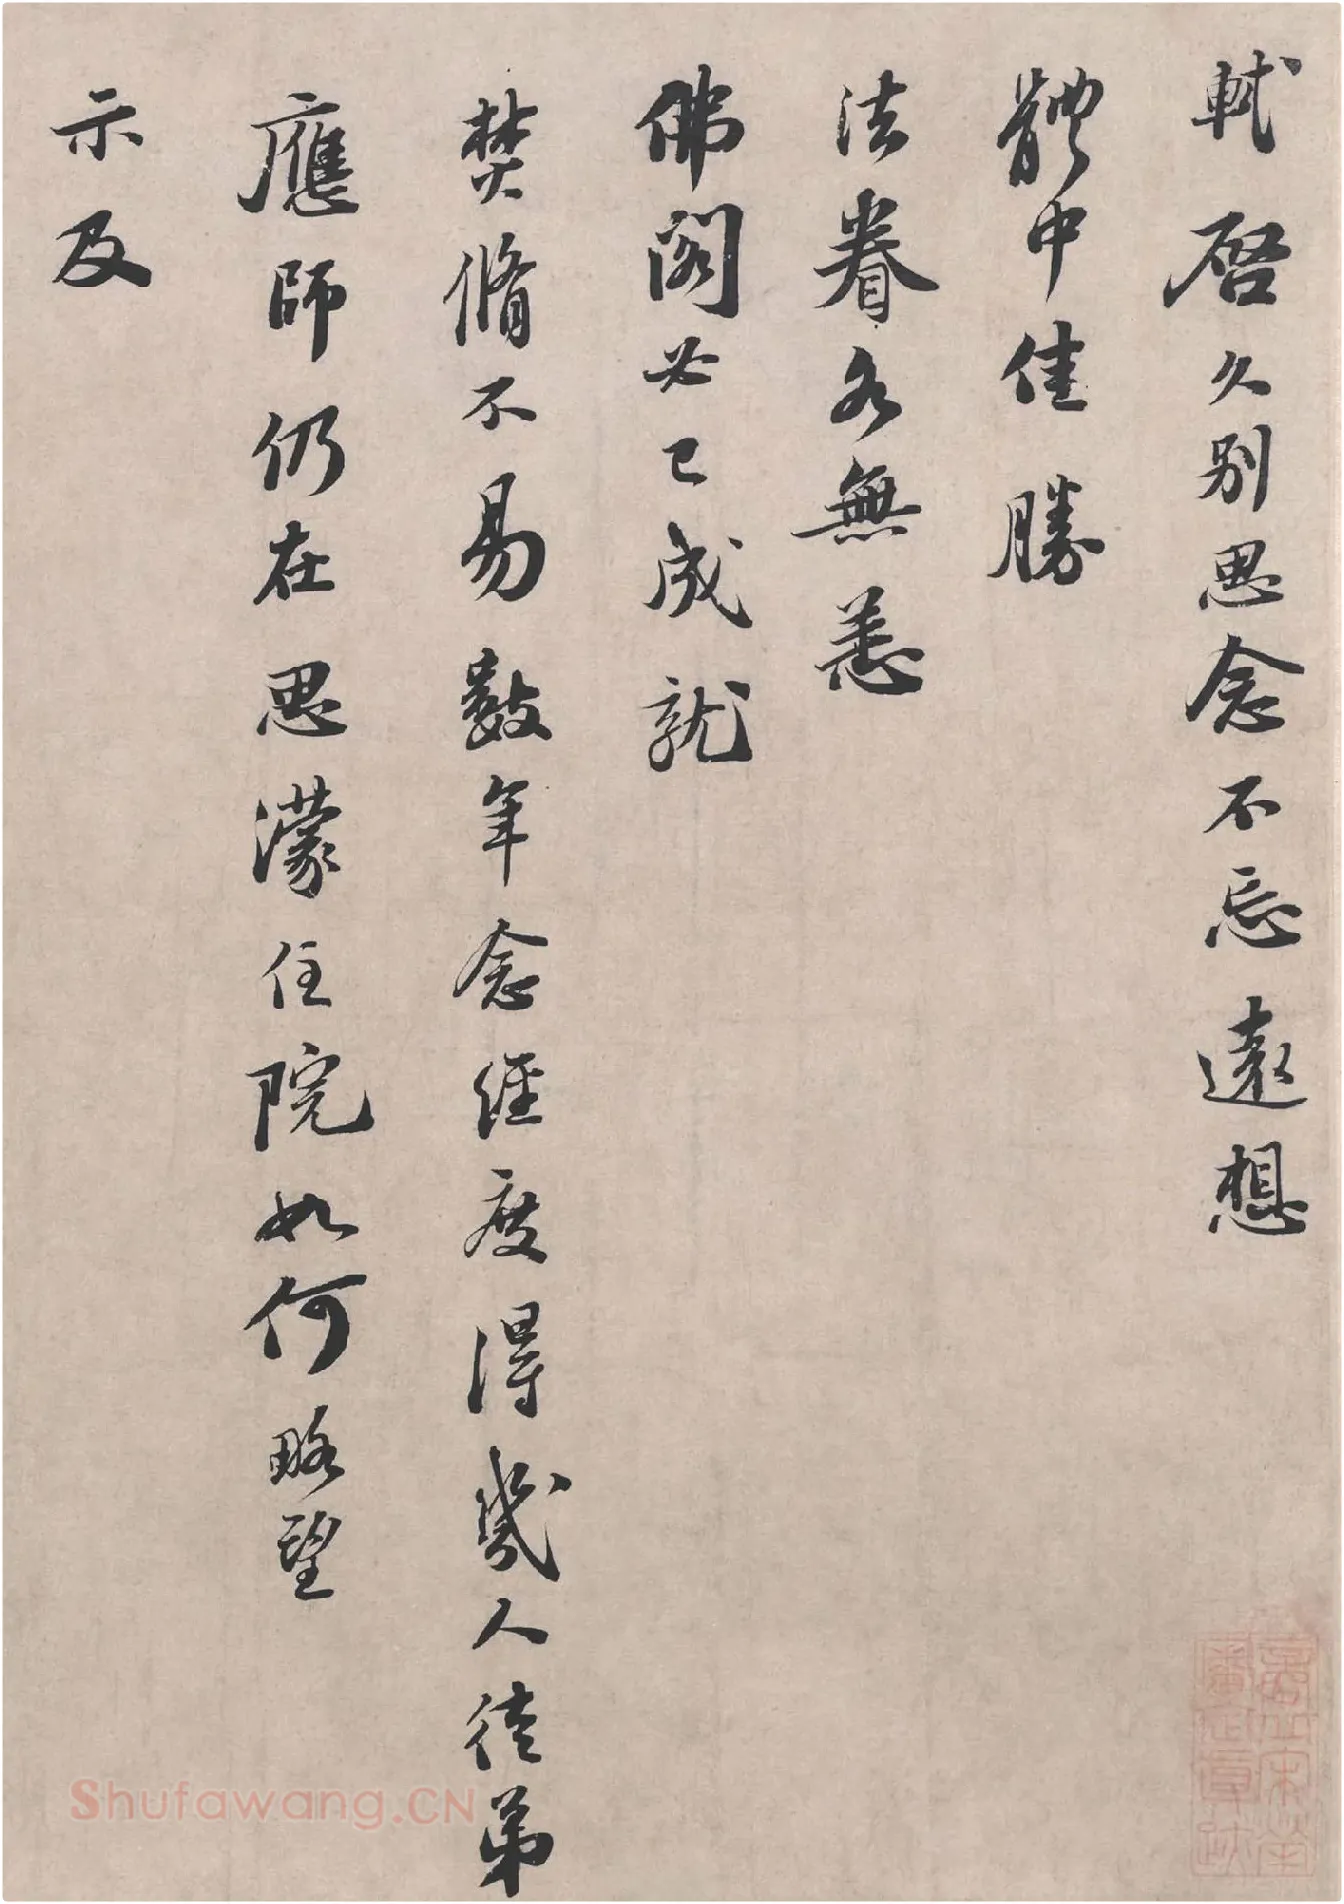 軾啓久別思念不忘遠想
體中佳勝
法眷各無恙
佛閣必已成就
焚脩不易數年念經度得幾人徒弟
應師仍在思濛住院如何略望
示及
Shufawang.CN